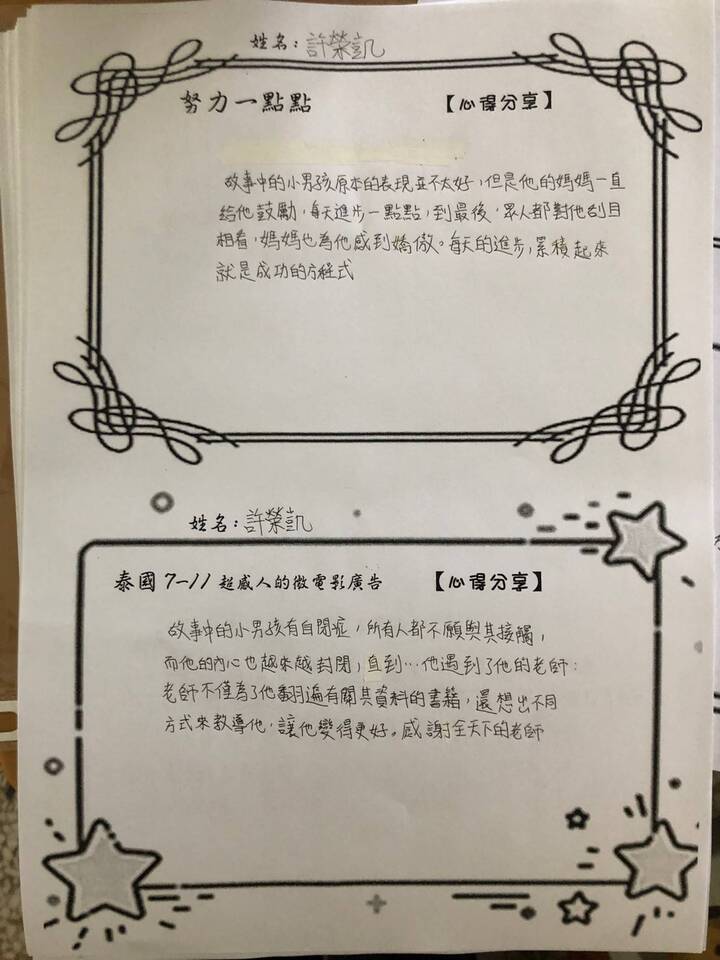 姓名：許榮凱
努力一點點 【心得分享】
故事中的小男孩原本的表現並不太好，但是他的媽媽一直
給他鼓勵，每天進步一點點，到最後，眾人都對他刮目
相看，媽媽也為他感到嬌傲。每天的進步，累積起來
就是成功的方程式
姓名：許榮凱
泰國7-11超感人的微電影廣告 【心得分享】
故事中的小男孩有自閉症，所有人都不願與其接觸，
而他的內心也越來越封閉，直到…他遇到了他的老師：
老師不僅為了他翻遍有關其資料的書籍，還想出不同
方式來教導他，讓他變得更好。感謝全天下的老師